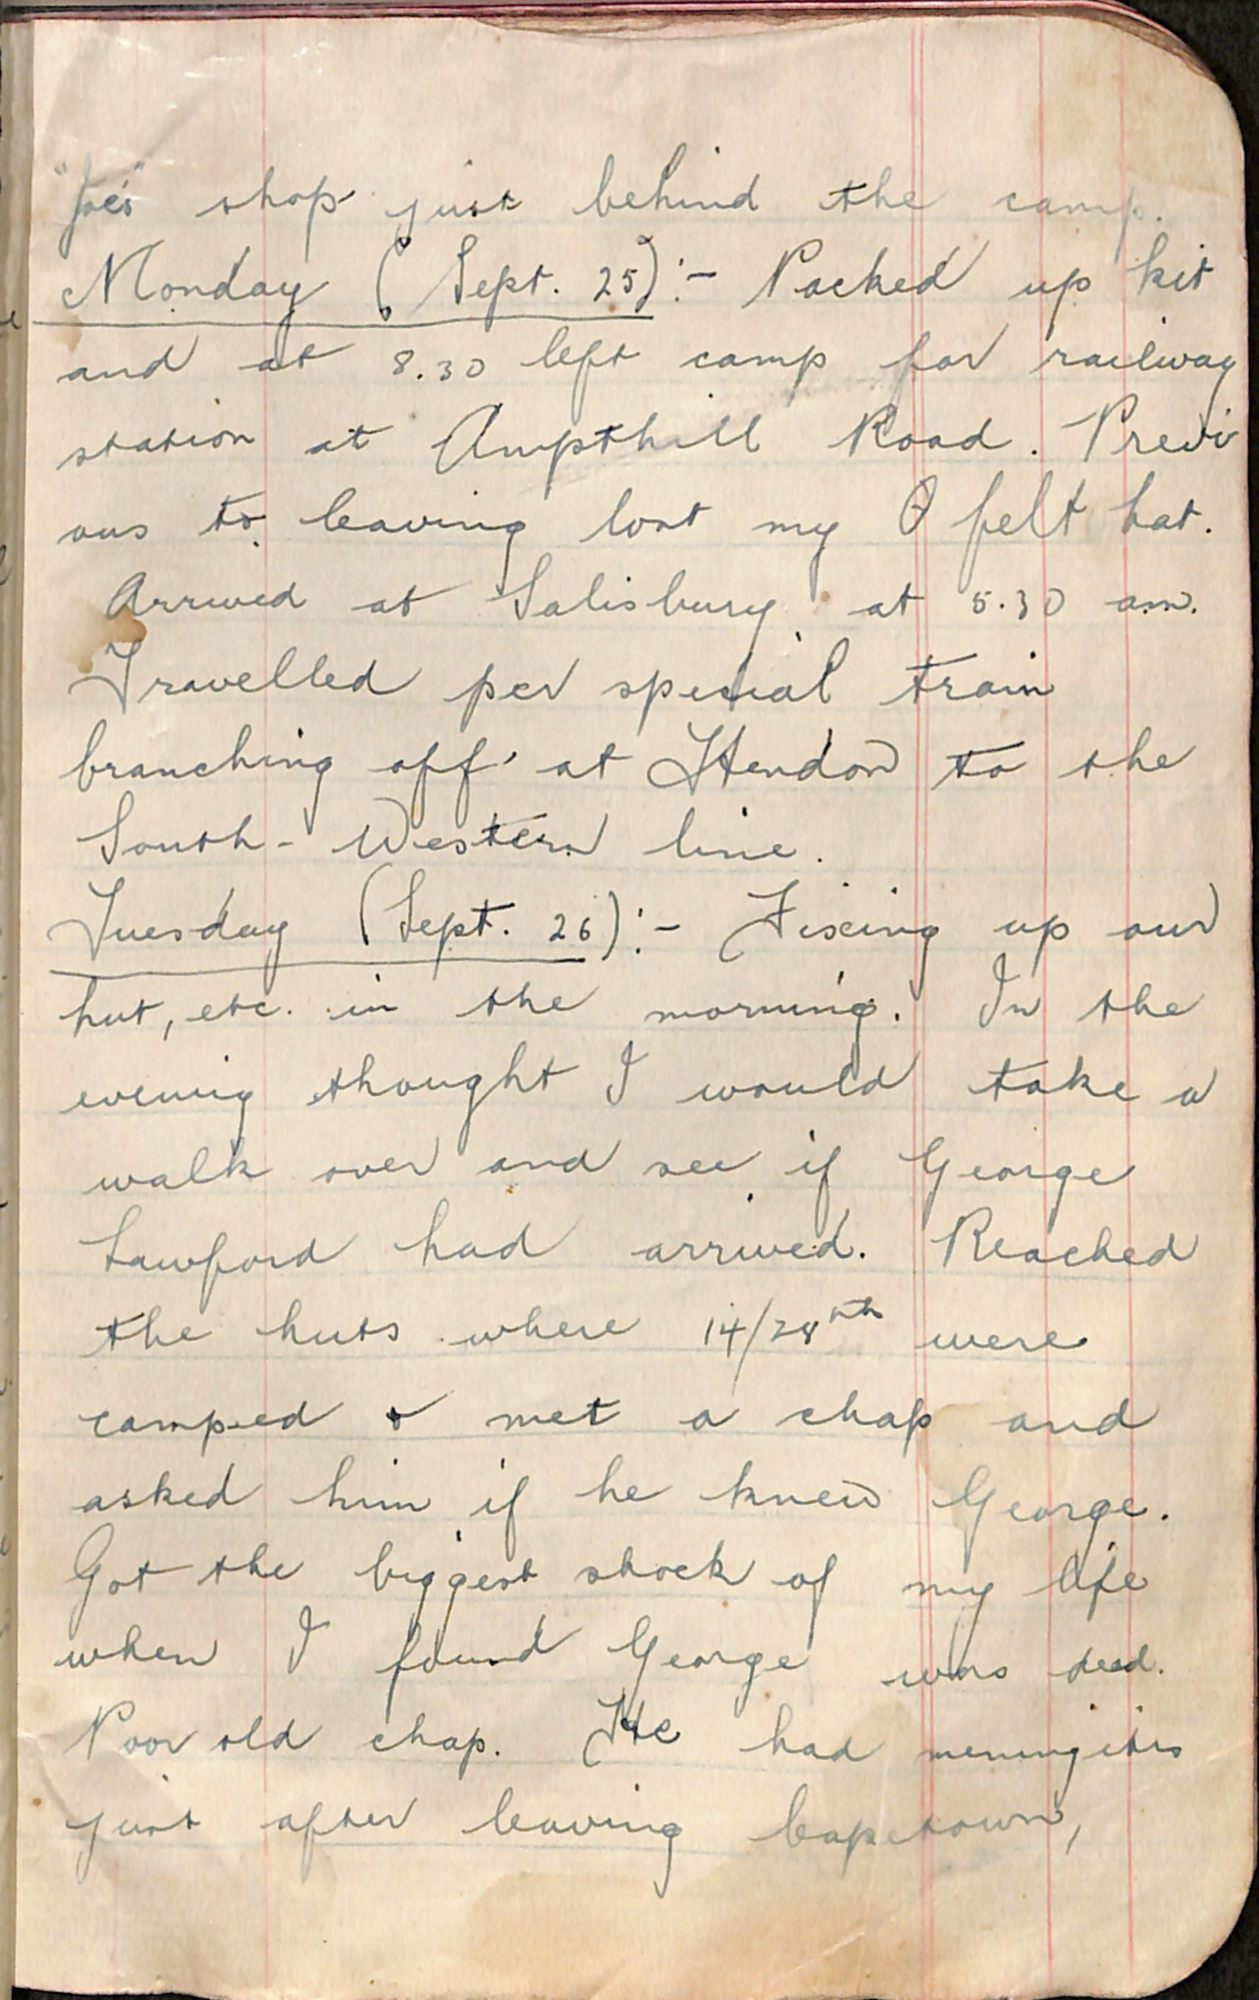 "Joe's" shop just behind the camp.
Monday (Sept. 25):- Packed up kit
and at 8.30 left camp for railway
station at Ampthill Road. Previ
ous to leaving lost my felt hat.
Arrived at Salisbury at 5.30 a.m.
Travelled per special train
branching off at Hendon to the
South-Western line.
Tuesday (Sept. 26):- Fixing up our
hut, etc. in the morning. In the
evening thought I would take a
walk over and see if George
Lawford had arrived. Reached
the huts where 14/28th were
camped & met a chap and
asked him if he knew George.
Got the biggest shock of my life
when I found George was dead.
Poor old chap. He had meningitis
just after leaving Capetown,